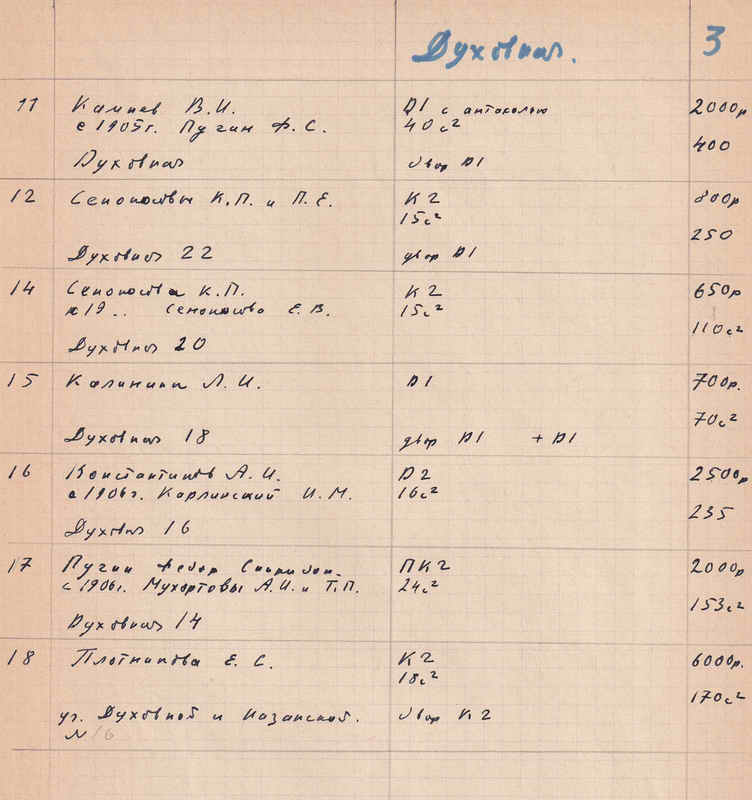 Духовная. 3
11 Камнев В.И. D1 с антаколью 2000р
с 1905г. Пугин Ф.С. 40с²
400
Духовная двор D1
12 К.П. и П.Е. К2 800р
15с²
250
Духовная 22 двор D1
14 К.П. К2 650р
19.. Е.В. 15с²
110с²
Духовная 20
15 Калинина Л.И. D1 700р.
70с²
Духовная 18 двор D1 + D1
16 Константинов А.И. D2 2500р
с 1906г. Карлинский И.М. 16с²
235
Духовная 16
17 Пугин Федор Спиридон. ПК2 2000р
с 1906г. Мухортовы А.И. и Т.П. 24с²
153с²
Духовная 14
18 Плотникова Е.С. К2 6000р.
18с²
170с²
уг. Духовной и Казанской. двор К2
№ 16